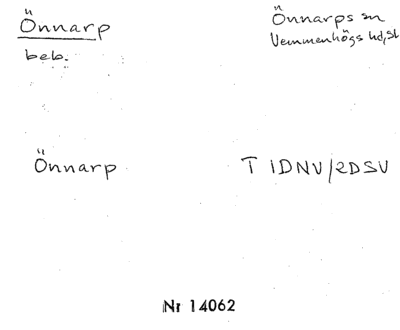 Önnarp
beb.
Önnarps sn
Vemmenhögs hd, Sk
Önnarp
T 1DNV/2DSV
Nr 14062